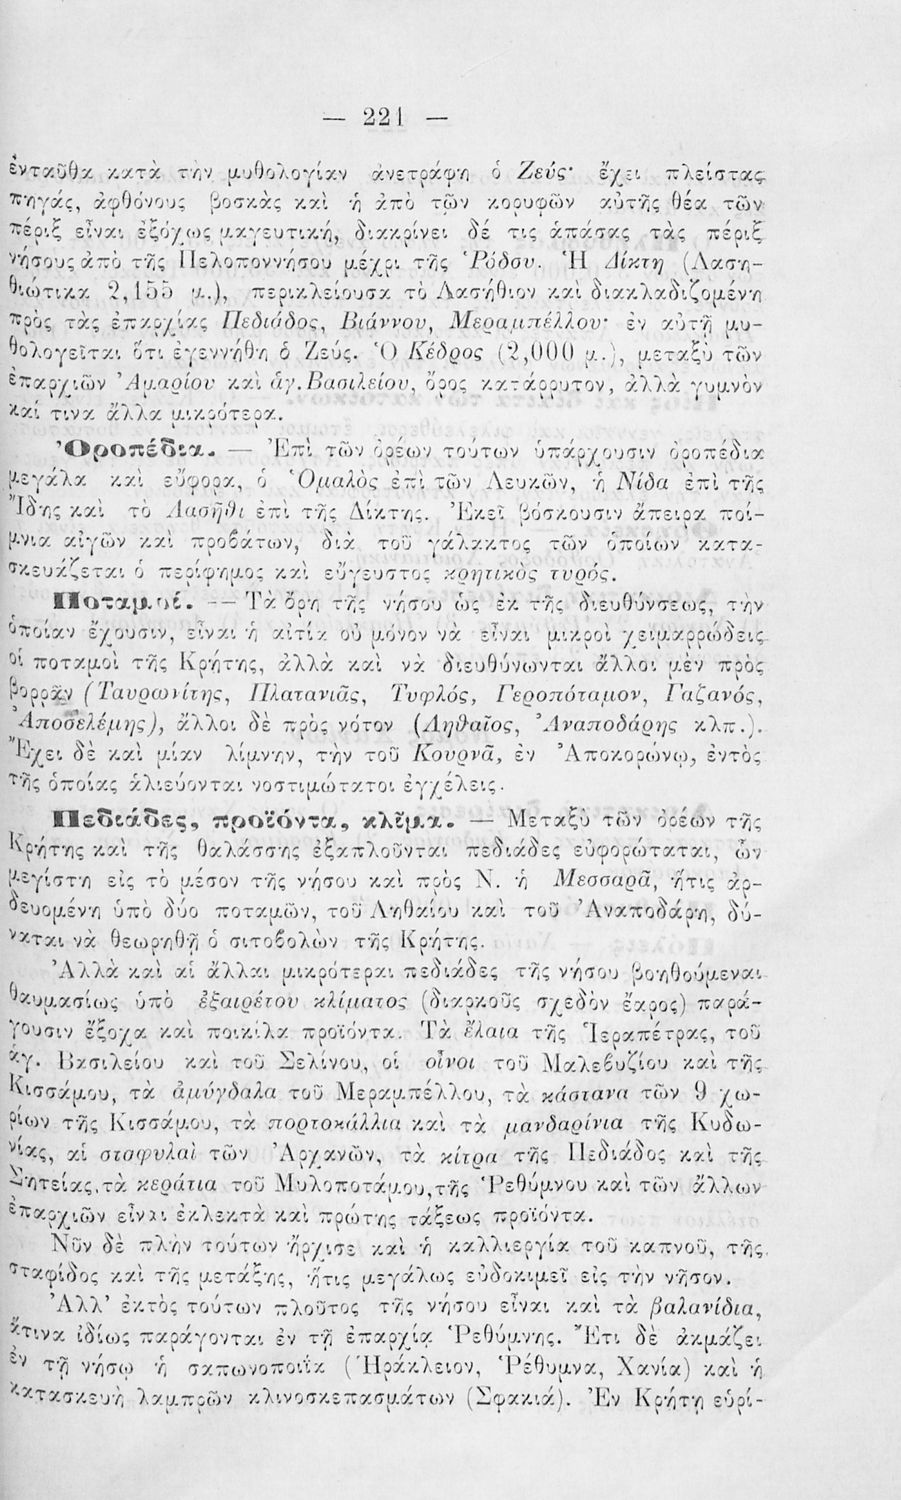 — 221 —
ἐνταῦθα κατὰ τὴν μυθολογίαν ἀνετράφη ὁ Ζεύς· ἔχει πλείστας
πηγάς, ἀφθόνους βοσκὰς καὶ ἡ ἀπὸ τῶν κορυφῶν αὐτῆς θέα τῶν
πέριξ εἶναι ἐξόχως μαγευτική, διακρίνει δέ τις ἁπάσας τὰς πέριξ
νήσους ἀπὸ τῆς Πελοποννήσου μέχρι τῆς Ῥόδου. Ἡ Δίκτη (Λαση-
θιώτικα 2,155 μ.), περικλείουσα τὸ Λασήθιον καὶ διακλαδιζομένη
πρὸς τὰς ἐπαρχίας Πεδιάδος, Βιάννου, Μεραμπέλλου· ἐν αὐτῇ μυ-
θολογεῖται ὅτι ἐγεννήθη ὁ Ζεύς. Ὁ Κέδρος (2,000 μ.), μεταξὺ τῶν
ἐπαρχιῶν Ἀμαρίου καὶ ἁγ. Βασιλείου, ὄρος κατάρρυτον, ἀλλὰ γυμνὸν
καί τινα ἄλλα μικρότερα.
Ὀροπέδια. — Ἐπὶ τῶν ὀρέων τούτων ὑπάρχουσιν ὀροπέδια
μεγάλα καὶ εὔφορα, ὁ Ὁμαλὸς ἐπὶ τῶν Λευκῶν, ἡ Νίδα ἐπὶ τῆς
Ἴδης καὶ τὸ Λασῆθι ἐπὶ τῆς Δίκτης. Ἐκεῖ βόσκουσιν ἄπειρα ποί-
μνια αἰγῶν καὶ προβάτων, διὰ τοῦ γάλακτος τῶν ὁποίων κατα-
σκευάζεται ὁ περίφημος καὶ εὔγευστος κρητικὸς τυρός.
Ποταμοί. — Τὰ ὄρη τῆς νήσου ὡς ἐκ τῆς διευθύνσεως, τὴν
ὁποίαν ἔχουσιν, εἶναι ἡ αἰτία οὐ μόνον νὰ εἶναι μικροὶ χειμαρρώδεις
οἱ ποταμοὶ τῆς Κρήτης, ἀλλὰ καὶ νὰ διευθύνωνται ἄλλοι μὲν πρὸς
βορρᾶν (Ταυρωνίτης, Πλατανιᾶς, Τυφλός, Γεροπόταμον, Γαζανός,
Ἀποσελέμης), ἄλλοι δὲ πρὸς νότον (Ληθαῖος, Ἀναποδάρης κλπ.).
Ἔχει δὲ καὶ μίαν λίμνην, τὴν τοῦ Κουρνᾶ, ἐν Ἀποκορώνῳ, ἐντὸς
τῆς ὁποίας ἁλιεύονται νοστιμώτατοι ἐγχέλεις.
Πεδιάδες, προϊόντα, κλῖμα. — Μεταξὺ τῶν ὀρέων τῆς
Κρήτης καὶ τῆς θαλάσσης ἐξαπλοῦνται πεδιάδες εὐφορώταται, ὧν
μεγίστη εἰς τὸ μέσον τῆς νήσου καὶ πρὸς Ν. ἡ Μεσσαρᾶ, ἥτις ἀρ-
δευομένη ὑπὸ δύο ποταμῶν, τοῦ Ληθαίου καὶ τοῦ Ἀναποδάρη, δύ-
ναται νὰ θεωρηθῇ ὁ σιτοβολὼν τῆς Κρήτης.
Ἀλλὰ καὶ αἱ ἄλλαι μικρότεραι πεδιάδες τῆς νήσου βοηθούμεναι
θαυμασίως ὑπὸ ἐξαιρέτου κλίματος (διαρκοῦς σχεδὸν ἔαρος) παρά-
γουσιν ἔξοχα καὶ ποικίλα προϊόντα. Τὰ ἔλαια τῆς Ἱεραπέτρας, τοῦ
ἁγ. Βασιλείου καὶ τοῦ Σελίνου, οἱ οἶνοι τοῦ Μαλεβυζίου καὶ τῆς
Κισσάμου, τὰ ἀμύγδαλα τοῦ Μεραμπέλλου, τὰ κάστανα τῶν 9 χω-
ρίων τῆς Κισσάμου, τὰ πορτοκάλλια καὶ τὰ μανδαρίνια τῆς Κυδω-
νίας, αἱ σταφυλαὶ τῶν Ἀρχανῶν, τὰ κίτρα τῆς Πεδιάδος καὶ τῆς
Σητείας, τὰ κεράτια τοῦ Μυλοποτάμου, τῆς Ῥεθύμνου καὶ τῶν ἄλλων
ἐπαρχιῶν εἶναι ἐκλεκτὰ καὶ πρώτης τάξεως προϊόντα.
Νῦν δὲ πλὴν τούτων ἤρχισε καὶ ἡ καλλιεργία τοῦ καπνοῦ, τῆς
σταφίδος καὶ τῆς μετάξης, ἥτις μεγάλως εὐδοκιμεῖ εἰς τὴν νῆσον.
Ἀλλ' ἐκτὸς τούτων πλοῦτος τῆς νήσου εἶναι καὶ τὰ βαλανίδια,
ἅτινα ἰδίως παράγονται ἐν τῇ ἐπαρχίᾳ Ῥεθύμνης. Ἔτι δὲ ἀκμάζει
ἐν τῇ νήσῳ ἡ σαπωνοποιΐα (Ἡράκλειον, Ῥέθυμνα, Χανία) καὶ ἡ
κατασκευὴ λαμπρῶν κλινοσκεπασμάτων (Σφακιά). Ἐν Κρήτῃ εὑρί-